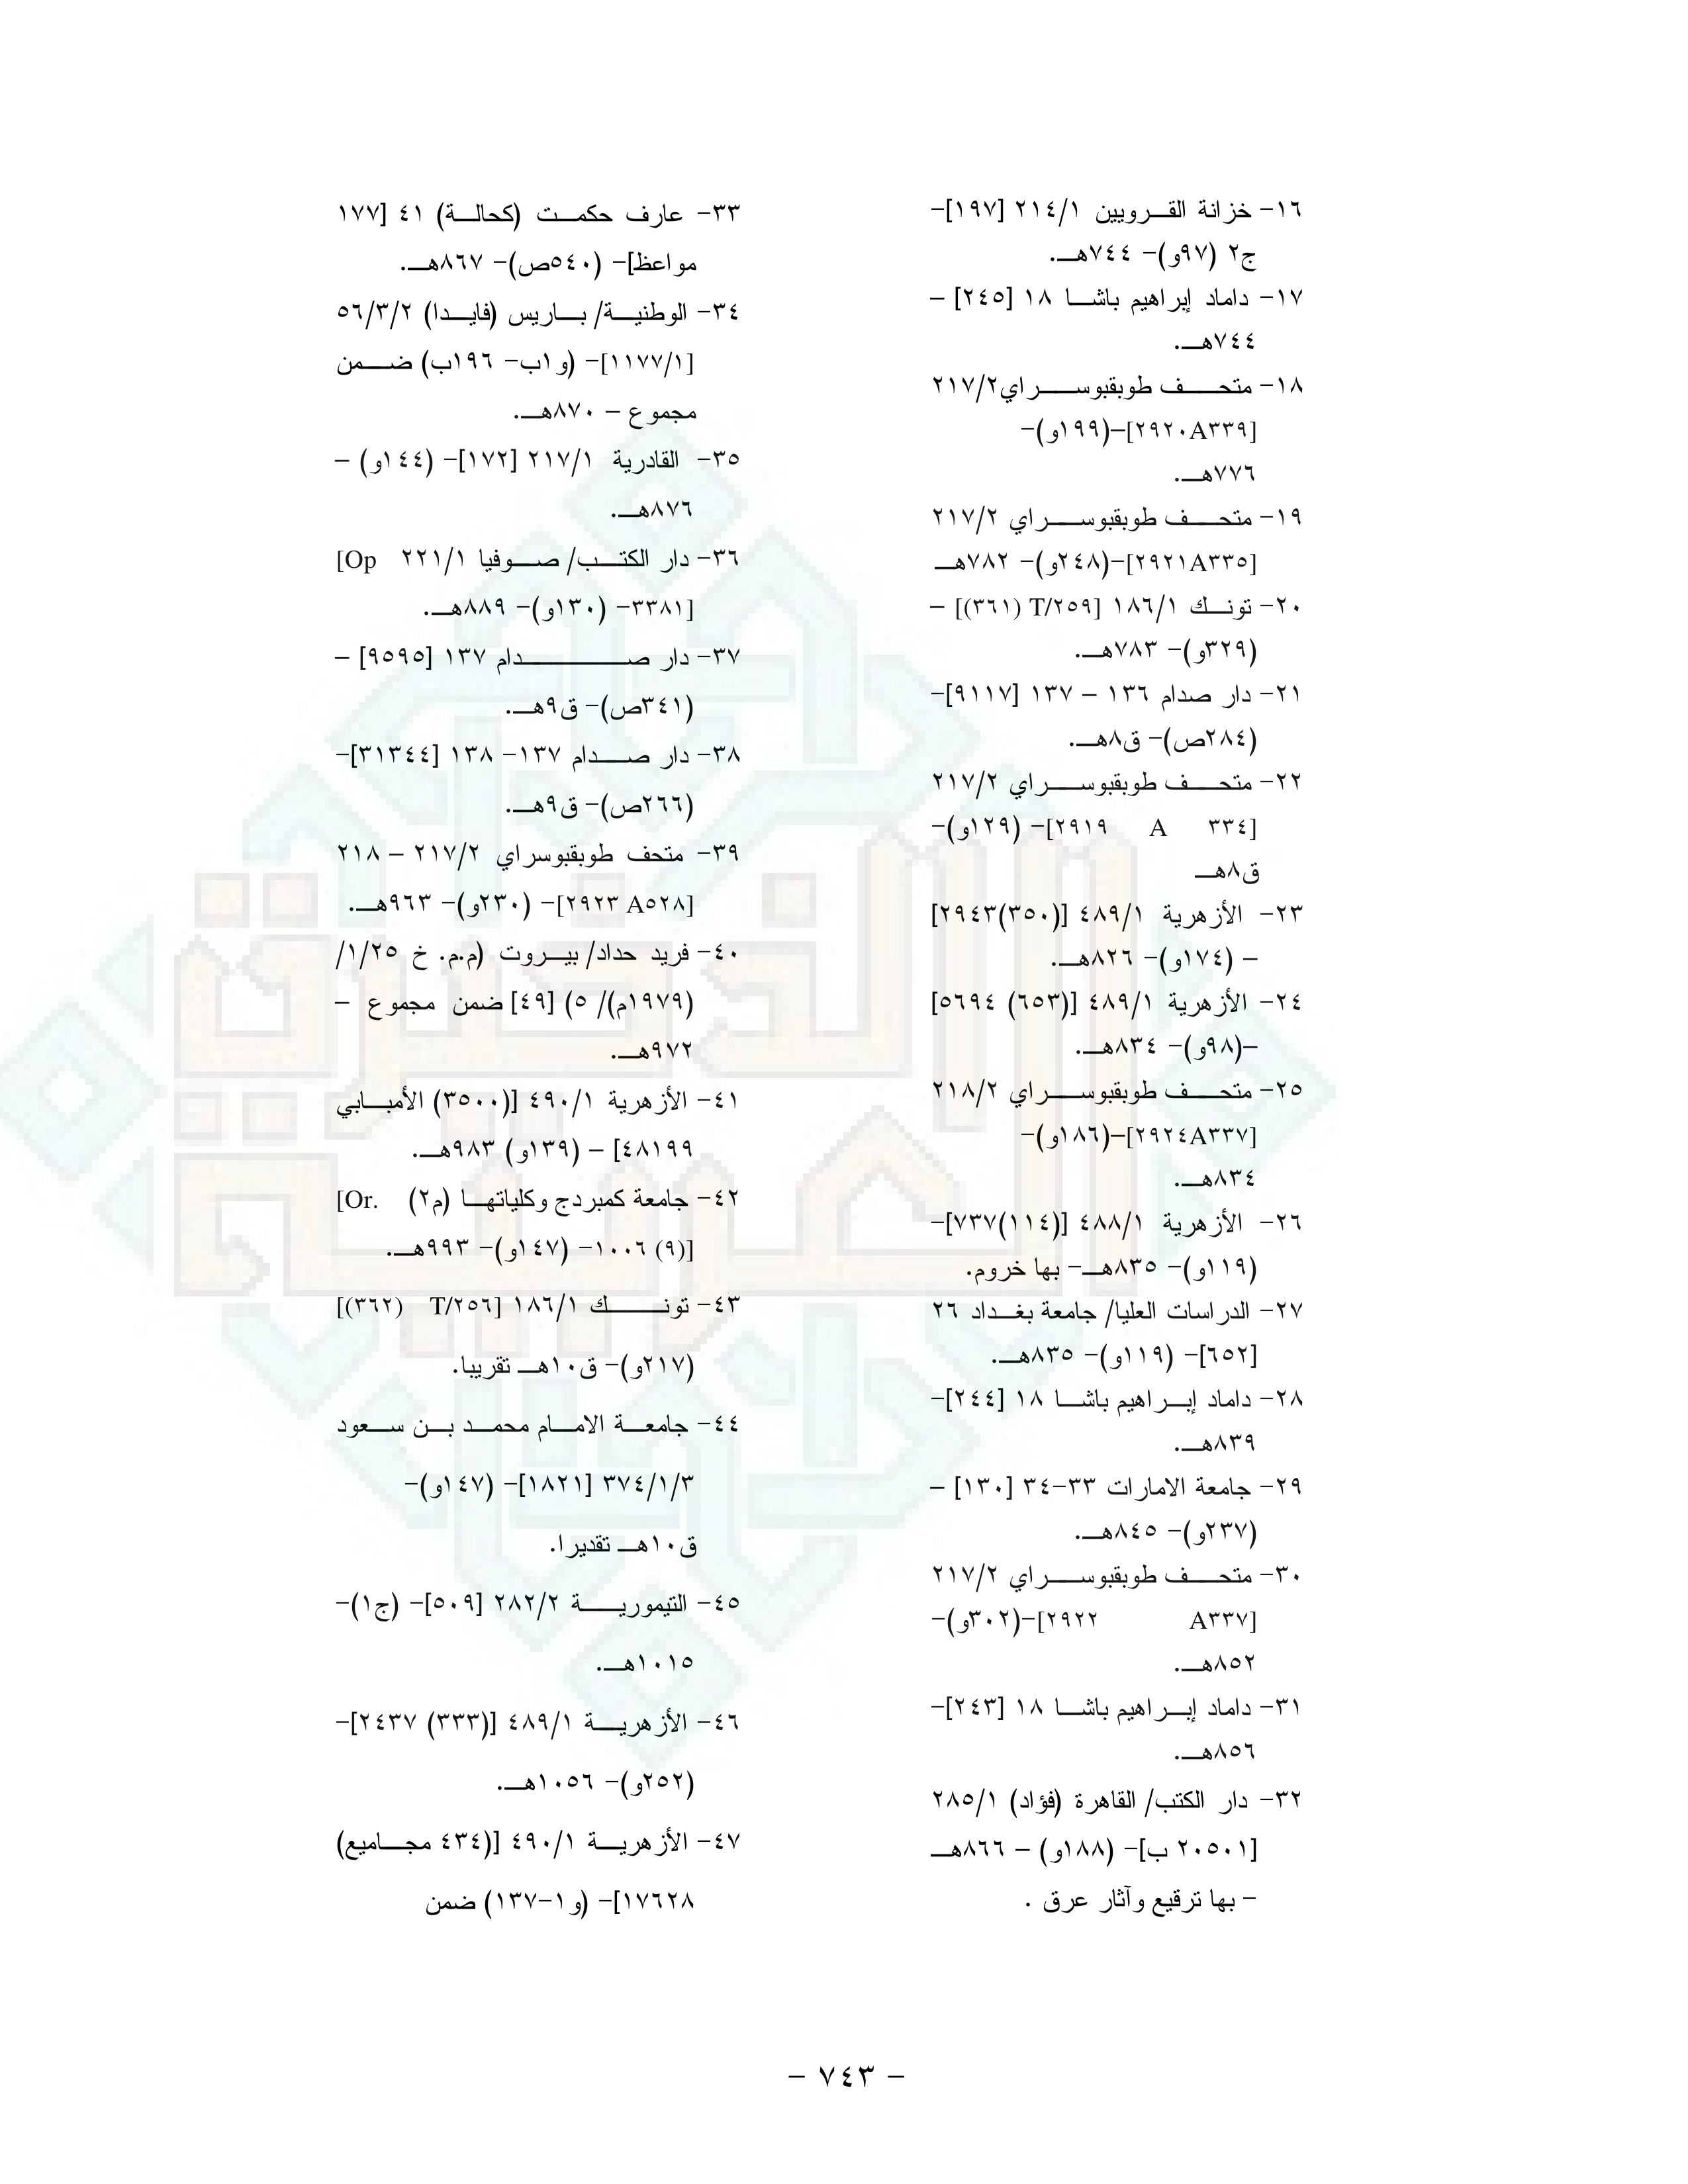 ١٦- خزانة القرويين ٢١٤/١ [١٩٧]-
ج٢ (٩٧و)- ٧٤٤هـ.
١٧- داماد إبراهيم باشا ١٨ [٢٤٥] –
٧٤٤هـ.
١٨- متحف طوبقبوسراي٢١٧/٢
[٢٩٢٠A٣٣٩]–(١٩٩و)-
٧٧٦هـ.
١٩- متحف طوبقبوسراي ٢١٧/٢
[٢٩٢١A٣٣٥]–(٢٤٨و)- ٧٨٢هـ
٢٠- تونك ١٨٦/١ [T/٢٥٩ (٣٦١)] –
(٣٢٩و)- ٧٨٣هـ.
٢١- دار صدام ١٣٦ – ١٣٧ [٩١١٧]-
(٢٨٤ص)- ق٨هـ.
٢٢- متحف طوبقبوسراي ٢١٧/٢
[٢٩١٩ A ٣٣٤]- (١٢٩و)-
ق٨هـ
٢٣- الأزهرية ٤٨٩/١ [(٣٥٠)٢٩٤٣]
– (١٧٤و)- ٨٢٦هـ.
٢٤- الأزهرية ٤٨٩/١ [(٦٥٣) ٥٦٩٤]
–(٩٨و)- ٨٣٤هـ.
٢٥- متحف طوبقبوسراي ٢١٨/٢
[٢٩٢٤A٣٣٧]–(١٨٦و)-
٨٣٤هـ.
٢٦- الأزهرية ٤٨٨/١ [(١١٤)٧٣٧]-
(١١٩و)- ٨٣٥هـ- بها خروم.
٢٧- الدراسات العليا/ جامعة بغداد ٢٦
[٦٥٢]- (١١٩و)- ٨٣٥هـ.
٢٨- داماد إبراهيم باشا ١٨ [٢٤٤]-
٨٣٩هـ.
٢٩- جامعة الامارات ٣٣-٣٤ [١٣٠] –
(٢٣٧و)- ٨٤٥هـ.
٣٠- متحف طوبقبوسراي ٢١٧/٢
[٢٩٢٢ A٣٣٧]-(٣٠٢و)-
٨٥٢هـ.
٣١- داماد إبراهيم باشا ١٨ [٢٤٣]-
٨٥٦هـ.
٣٢- دار الكتب/ القاهرة (فؤاد) ٢٨٥/١
[٢٠٥٠١ ب]- (١٨٨و) – ٨٦٦هـ
- بها ترقيع وآثار عرق .
٣٣- عارف حكمت (كحالة) ٤١ [١٧٧
مواعظ]- (٥٤٠ص)- ٨٦٧هـ.
٣٤- الوطنية/ باريس (فايدا) ٥٦/٣/٢
[١١٧٧/١]- (و١ب- ١٩٦ب) ضمن
مجموع – ٨٧٠هـ.
٣٥- القادرية ٢١٧/١ [١٧٢]- (١٤٤و) –
٨٧٦هـ.
٣٦- دار الكتب/ صوفيا ٢٢١/١ [Op
٣٣٨١]- (١٣٠و)- ٨٨٩هـ.
٣٧- دار صدام ١٣٧ [٩٥٩٥] –
(٣٤١ص)- ق٩هـ.
٣٨- دار صدام ١٣٧- ١٣٨ [٣١٣٤٤]-
(٢٦٦ص)- ق٩هـ.
٣٩- متحف طوبقبوسراي ٢١٧/٢ – ٢١٨
[٢٩٢٣ A٥٢٨]- (٢٣٠و)- ٩٦٣هـ.
٤٠- فريد حداد/ بيروت (م.م. خ ١/٢٥/
(١٩٧٩م)/ ٥) [٤٩] ضمن مجموع –
٩٧٢هـ.
٤١- الأزهرية ٤٩٠/١ [(٣٥٠٠) الأمبابي
٤٨١٩٩] – (١٣٩و) ٩٨٣هـ.
٤٢- جامعة كمبردج وكلياتها (م٢) [Or.
١٠٠٦ (٩)]- (١٤٧و)- ٩٩٣هـ.
٤٣- تونك ١٨٦/١ [T/٢٥٦ (٣٦٢)]
(٢١٧و)- ق١٠هـ تقريبا.
٤٤- جامعة الامام محمد بن سعود
٣٧٤/١/٣ [١٨٢١]- (١٤٧و)-
ق١٠هـ تقديرا.
٤٥- التيمورية ٢٨٢/٢ [٥٠٩]- (ج١)-
١٠١٥هـ.
٤٦- الأزهرية ٤٨٩/١ [(٣٣٣) ٢٤٣٧]-
(٢٥٢و)- ١٠٥٦هـ.
٤٧- الأزهرية ٤٩٠/١ [(٤٣٤ مجاميع)
١٧٦٢٨]- (و١-١٣٧) ضمن
- ٧٤٣ -